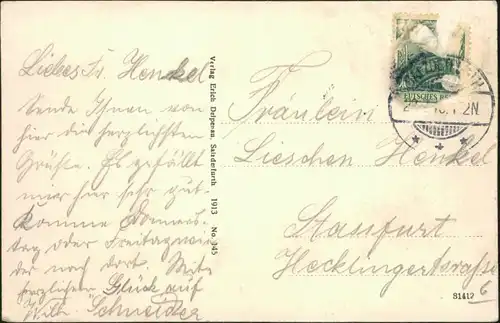 Liebes Frl. Henkel
Sende Ihnen von
hier die herzlichsten
Grüße. Es gefällt
mir hier sehr gut.
Komme Donners-
tag oder Freitag wie-
der nach dort. Mit
herzlichem Glück auf
Wilh. Schneider
Verlag Erich Delpenau, Salzderfurth 1913 No. 145
Fräulein
Lieschen Henkel
Stassfurt
Hecklingerstrasse
6
S1412